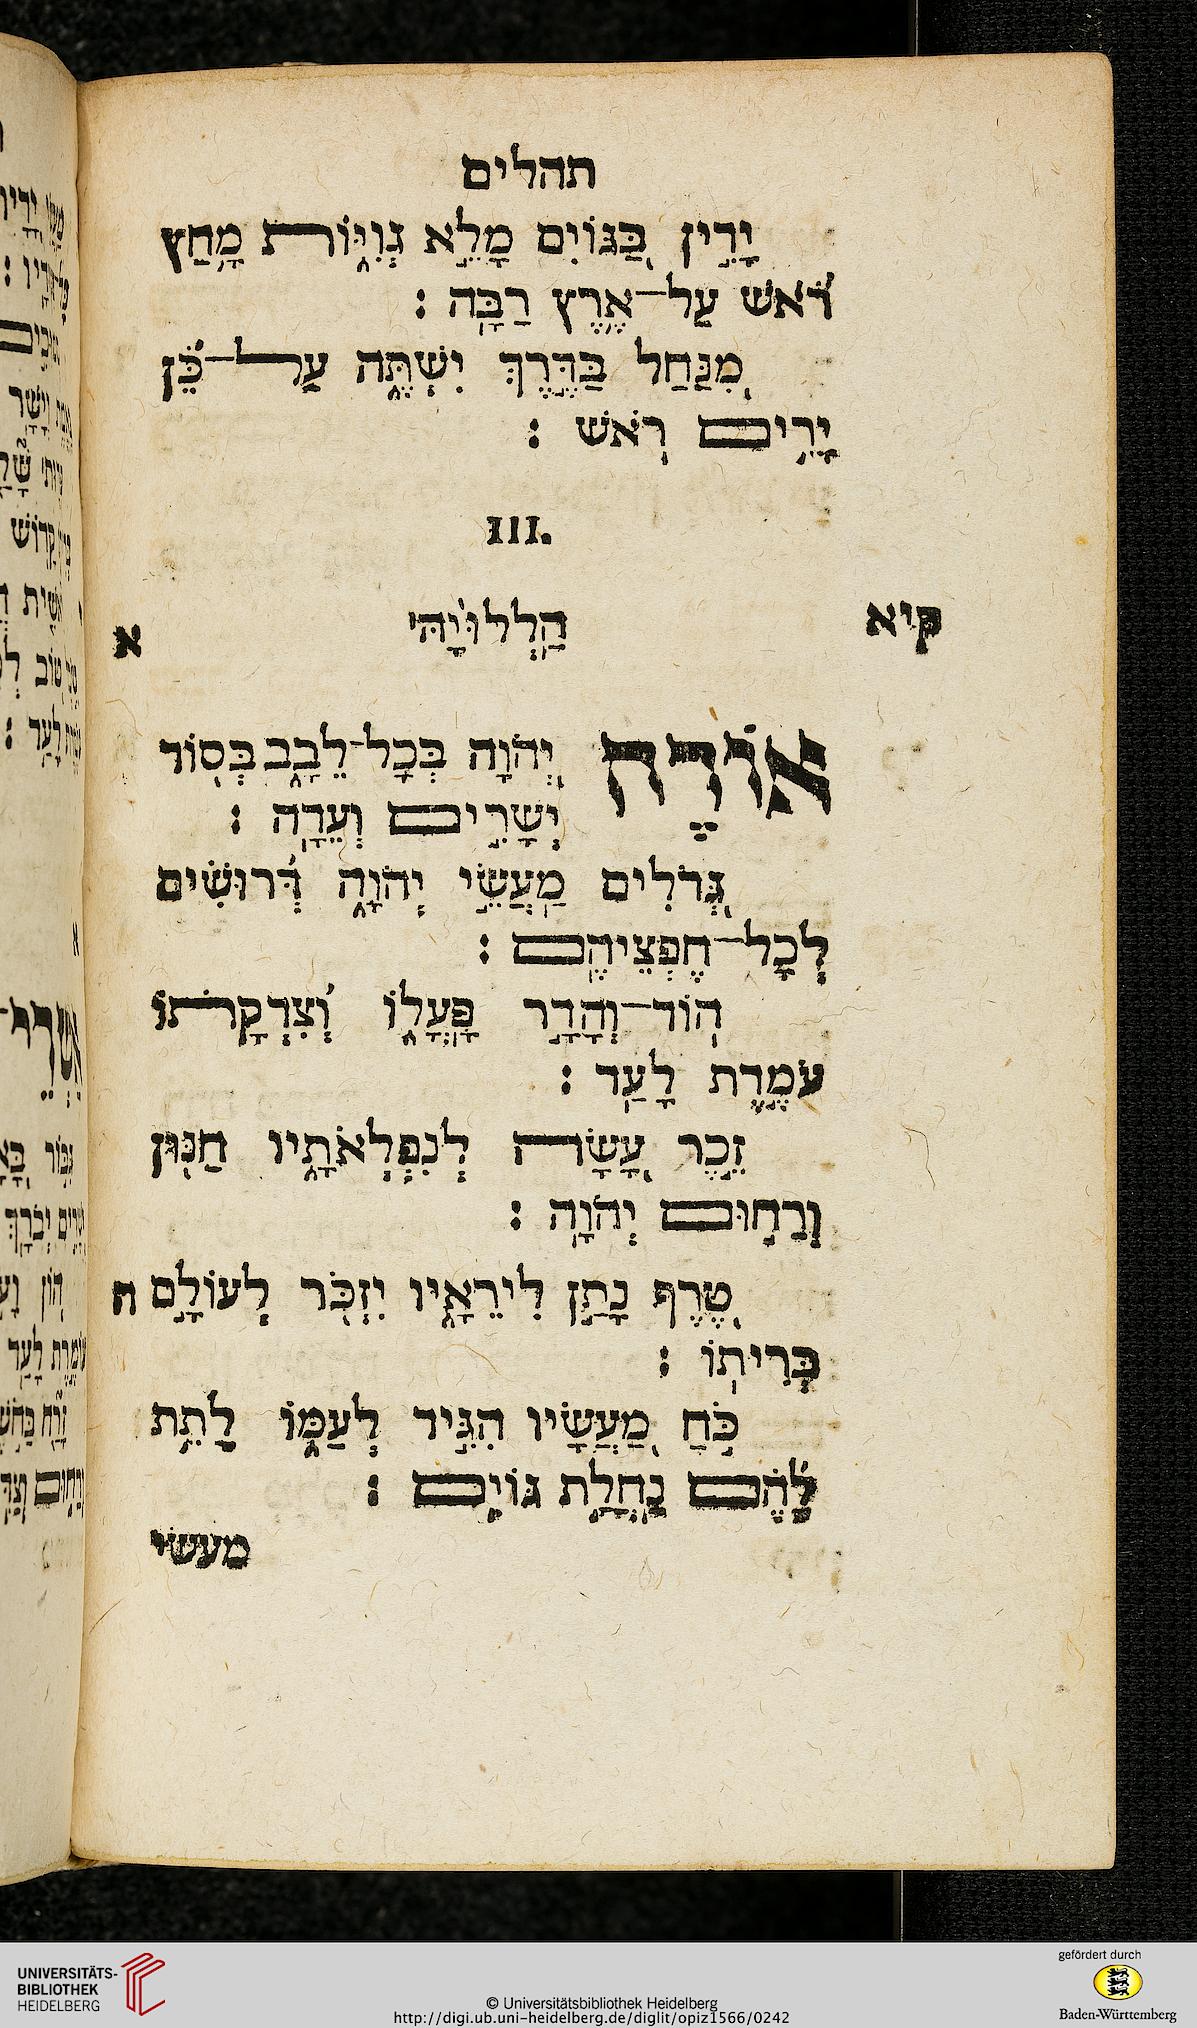 תהלים
יָדִ֣ין בַּ֭גּוֹיִם מָלֵ֣א גְוִיּ֑וֹת מָ֥חַץ
רֹ֝֗אשׁ עַל־אֶ֥רֶץ רַבָּֽה :
מִ֭נַּחַל בַּדֶּ֣רֶךְ יִשְׁתֶּ֑ה עַל־כֵּ֝֗ן
יָרִ֥ים רֹֽאשׁ :
III.
קיא
הַ֥לְלוּיָ֨הּ ׀
א
אוֹדֶ֣ה יְ֭הוָה בְּכָל־לֵבָ֑ב בְּס֖וֹד
יְשָׁרִ֣ים וְעֵדָֽה :
גְּ֭דֹלִים מַעֲשֵׂ֣י יְהוָ֑ה דְּ֝רוּשִׁ֗ים
לְכָל־חֶפְצֵיהֶֽם :
הוֹד־וְהָדָ֥ר פָּֽעֳל֑וֹ וְ֝צִדְקָת֗וֹ
עֹמֶ֥דֶת לָעַֽד :
זֵ֣כֶר עָ֭שָׂה לְנִפְלְאֹתָ֑יו חַנּ֖וּן
וְרַח֣וּם יְהוָֽה :
טֶ֭רֶף נָתַ֣ן לִֽירֵאָ֑יו יִזְכֹּ֖ר לְעוֹלָ֣ם
ה
בְּרִיתֽוֹ :
כֹּ֣חַ מַ֭עֲשָׂיו הִגִּ֣יד לְעַמּ֑וֹ לָתֵ֥ת
לָ֝הֶ֗ם נַחֲלַ֥ת גּוֹיִֽם :
מעשי
UNIVERSITÄTS-
BIBLIOTHEK
HEIDELBERG
© Universitätsbibliothek Heidelberg
http://digi.ub.uni-heidelberg.de/diglit/opiz1566/0242
gefördert durch
Baden-Württemberg